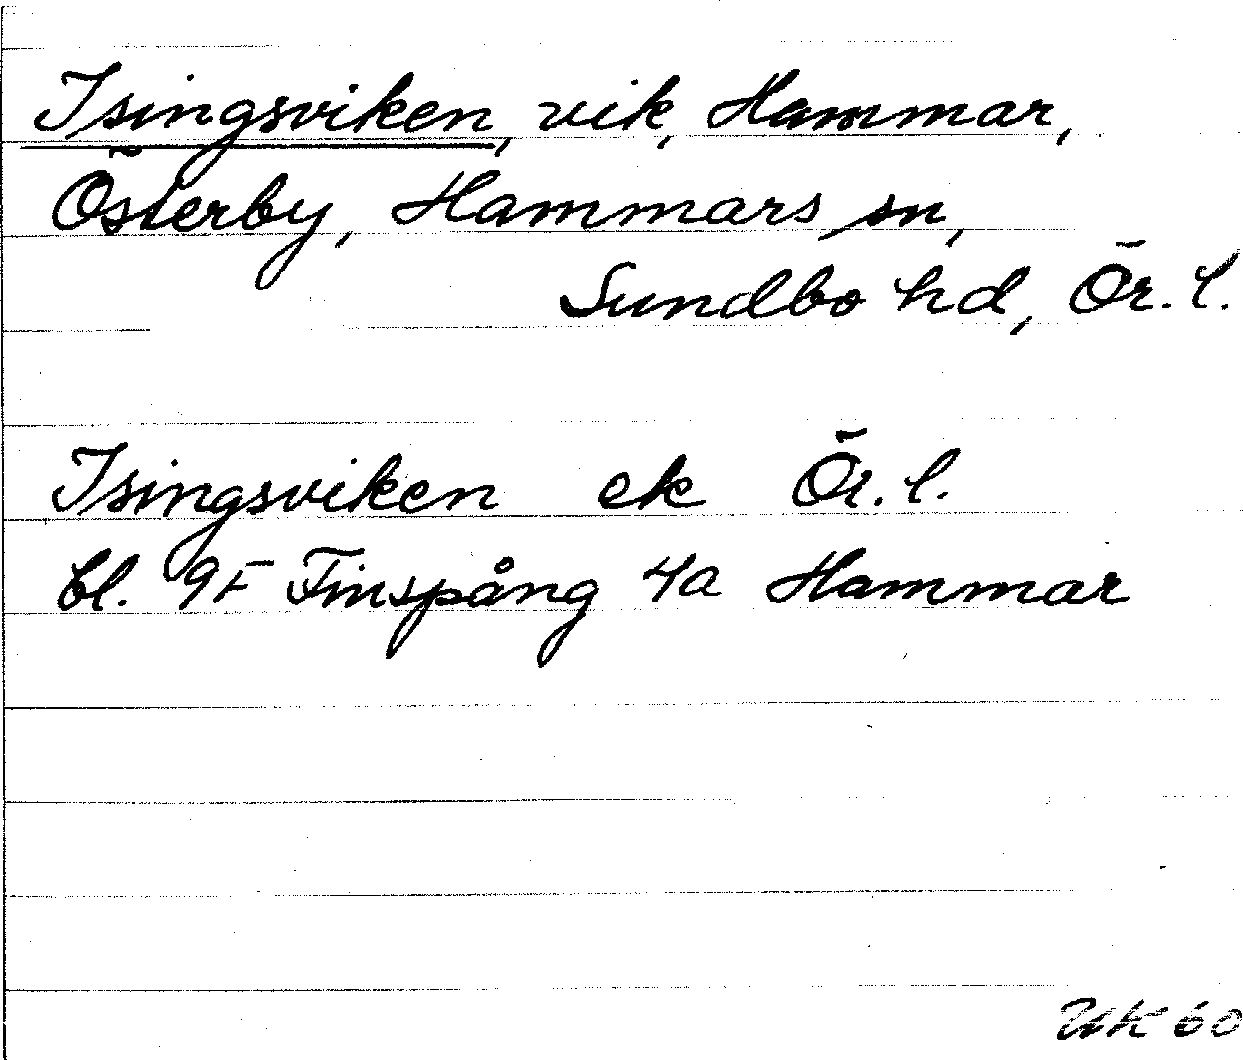 Isingsviken, vik, Hammar,
Österby, Hammars sn,
Sundbo hd, Ör. l.
Isingsviken ek Ör. l.
bl. 9F Finspång 4a Hammar
UK 60